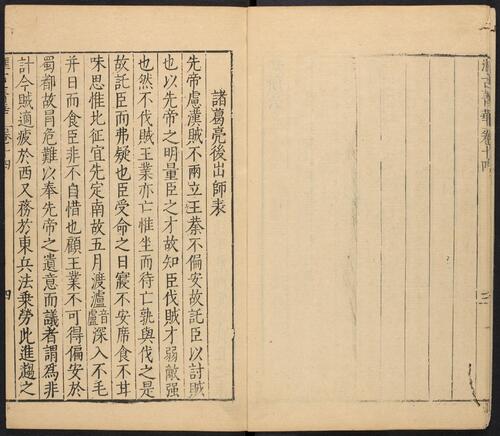 卷十四
諸葛亮後出師表
先帝慮漢賊不兩立王業不偏安故託臣以討賊
也以先帝之明量臣之才故知臣伐賊才弱敵强
也然不伐賊王業亦亡惟坐而待亡孰與伐之是
故託臣而弗疑也臣受命之日寢不安席食不甘
味思惟北征宜先定南故五月渡瀘音盧深入不毛
并日而食臣非不自惜也顧王業不可得偏安於
蜀都故冒危難以奉先帝之遺意而議者謂為非
計今賊適疲於西又務於東兵法乘勞此進趨之
卷十四
四